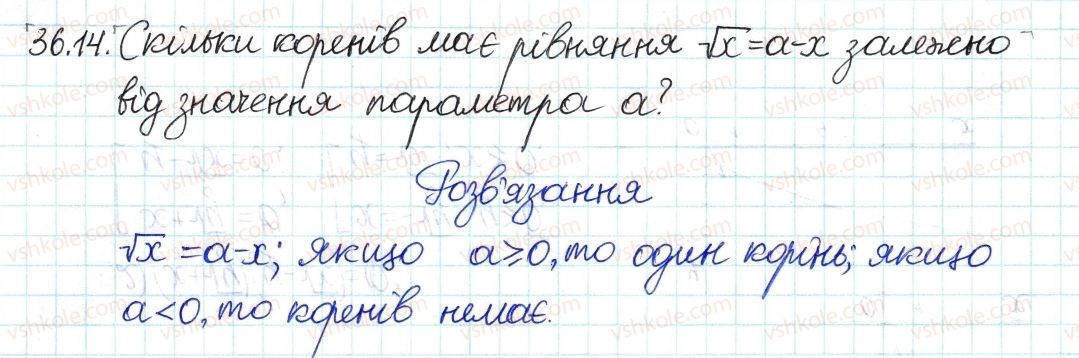 36.14. Скільки коренів має рівняння √x = a-x залежно
від значення параметра a?
Розв'язання
√x = a-x; якщо a ≥ 0, то один корінь; якщо
a < 0, то коренів немає.